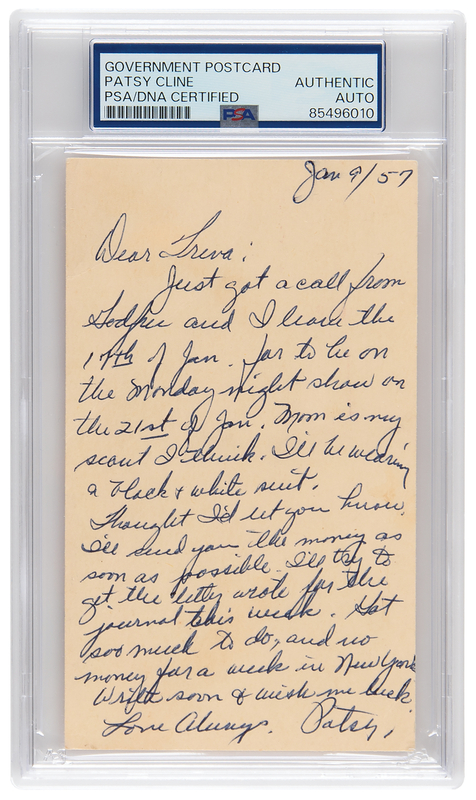 GOVERNMENT POSTCARD
PATSY CLINE
PSA/DNA CERTIFIED
AUTHENTIC
AUTO
85496010
PSA
Jan 9/57
Dear Treva:
Just got a call from
Godfrey and I leave the
17th of Jan. for to be on
the Monday night show on
the 21st of Jan. Mom is my
scout I think. I'll be wearing
a black & white suit.
Thought I'd let you know.
I'll send you the money as
soon as possible. I'll try to
get the letter wrote for the
journal this week. Got
soo much to do, and no
money for a week in New York
Write soon & wish me luck
Love Always. Patsy.